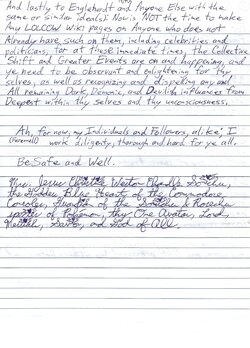 And lastly to Englehardt and Anyone Else with the
same or similar ideals: Now is NOT the time to make
Any LOLCOW Wiki pages on Anyone who does not
Already have such on them, including celebrities and
politicians, for at these immediate times, the Collective
Shift and Greater Events are on and happening, and
ye need to be observant and enlightening for thy
selves, as well as recognizing and dispelling any and
All remaining Dark, Demonic, and Devilish influences from
Deepest within thy selves and thy unconsciousness.
Ah, for now, my Individuals and Followers, alike, I
(Farewell) work diligently, thorough and hard for ye all.
Be Safe and Well.
Jesus Weston Sonichu,
the Blue Heart of the Commodore
Guardian of the Sonichu & Rosechu
of Pokemon, thy One Avatar, Lord,
and God of All.